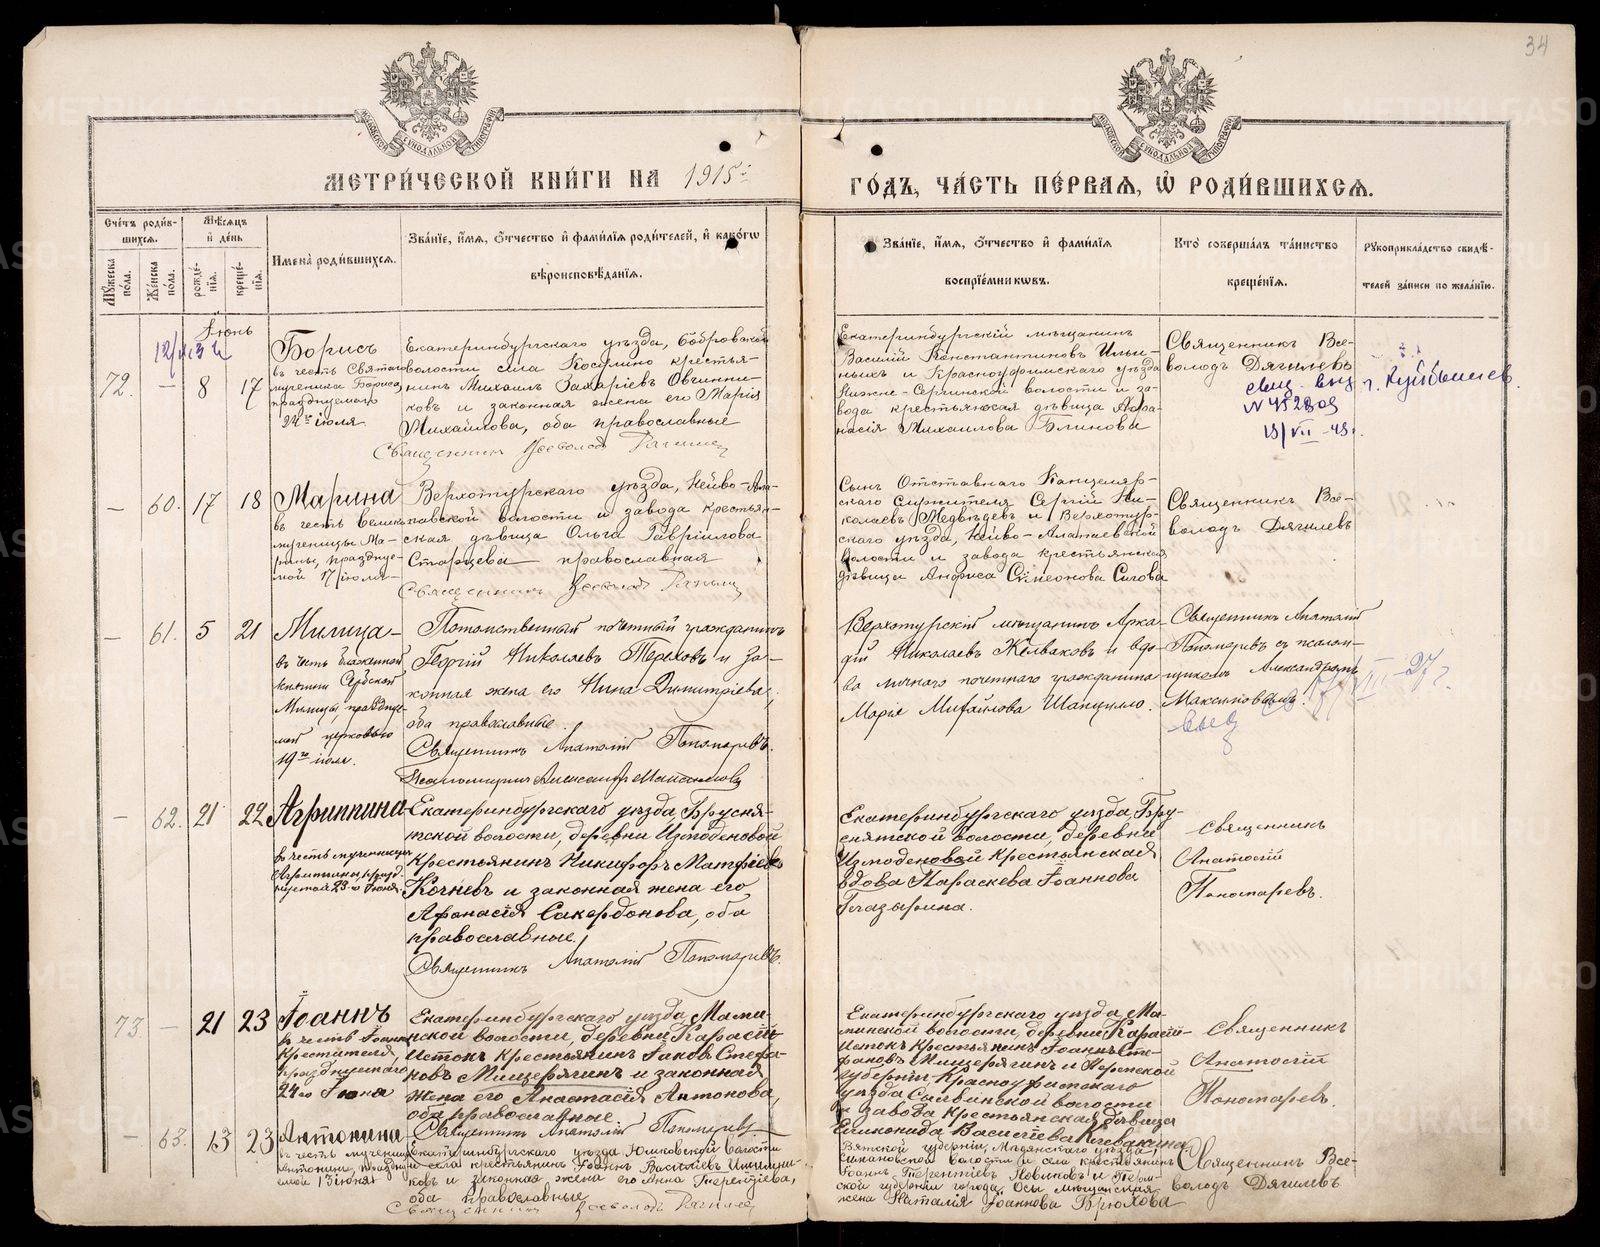 34
МЕТРИ́ЧЕСКОЙ КНИ́ГИ НА 1915й
ГО́ДЪ, ЧА́СТЬ ПЕ́РВАЯ, Ѡ РОДИ́ВШИХСЯ.
Сче́тъ роди́в-
шихся.
Мѣ́сяцъ
и҆ де́нь
Му́жеска по́ла.
Же́нска по́ла.
рожде́нїя.
креще́нїя.
Имена̀ роди́вшихся.
Зва́нїе, и҆́мя, ѻ҆́тчество и҆ фами́лїя роди́телей, и҆ како́гѡ
вѣроисповѣ́данїя.
Зва́нїе, и҆́мя, ѻ҆́тчество и҆ фами́лїя
воспрїе́мникѡвъ.
Кто̀ соверша́лъ та́инство
креще́нїя.
Рꙋкоприкла́дство свидѣ́-
телей за́писи по жела́нїю.
Іюнь
72. — 8 17
Борисъ
въ честь Святаго
мученика Бориса,
празднуемаго
24го іюля
Екатеринбургскаго уѣзда, Бобровской
волости села Косулино крестья-
нинъ Михаилъ Захаріевъ Овчинни-
ковъ и законная жена его Марія
Михайлова, оба православные
Священникъ Всеволодъ Дягилевъ
Екатеринбургскій мѣщанинъ
Василій Константиновъ Ильи-
ныхъ и Красноуфимскаго уѣзда
Нижне-Сергинской волости и за-
вода крестьянская дѣвица Аѳа-
насія Михаилова Блинова
Священникъ Все-
володъ Дягилевъ
г. Куйбышев.
— 60. 17 18
Марина
въ честь велико-
мученицы Ма-
рины, празднуе-
мой 17 іюля
Верхотурскаго уѣзда, Нейво-Ала-
паевской волости и завода крестьян-
ская дѣвица Ольга Гавріилова
Старцева православная
Священникъ Всеволодъ Дягилевъ
Сынъ Отставнаго Канцеляр-
скаго служителя Сергій Ни-
колаевъ Медвѣдевъ и Верхотур-
скаго уѣзда, Нейво-Алапаевской
волости и завода крестьянская
дѣвица Анфиса Симеонова
Священникъ Все-
володъ Дягилевъ
— 61. 5 21
Милица
въ честь блаженной
княгини Сербской
Милицы, празднуе-
мой церковью
19го іюля.
Потомственный почетный гражданинъ
Георгій Николаевъ Тереховъ и за-
конная жена его Нина Димитріева,
оба православные.
Священникъ Анатолій Пономаревъ.
Псаломщикъ Александръ Максимовъ
Верхотурскій мѣщанинъ Арка-
дій Николаевъ Желваковъ и вдо-
ва личнаго почетнаго гражданина
Марія Михайлова Шапулло.
Священникъ Анатолій
Пономаревъ съ псалом-
щикомъ Александромъ
Максимовымъ.
— 62. 21 22
Агриппина
въ честь мученицы
Агриппины, празд-
нуемой 23го Іюня.
Екатеринбургскаго уѣзда Брусня-
тской волости, деревни Измоденовой
крестьянинъ Никифоръ Матфіевъ
Кочневъ и законная жена его
Афанасія Сакердонова, оба
православные.
Священникъ Анатолій Пономаревъ.
Екатеринбургскаго уѣзда Бру-
снятской волости, деревни
Измоденовой крестьянская
вдова Параскева Іоаннова
Глазырина.
Священникъ
Анатолій
Пономаревъ.
73 — 21 23
Іоаннъ
въ честь Іоанна
Крестителя,
празднуемаго
24го Іюня
Екатеринбургскаго уѣзда Мами-
нской волости, деревни Карасій
Истокъ крестьянинъ Іаковъ Стефа-
новъ Мищерягинъ и законная
жена его Анастасія Антонова,
оба православные
Священникъ Анатолій Пономаревъ
Екатеринбургскаго уѣзда Ма-
минской волости, деревни Карасій
Истокъ крестьянинъ Іоаннъ Сте-
фановъ Мищерягинъ и Пермской
губерніи Красноуфимскаго
уѣзда Сылвинской волости
и завода крестьянская дѣвица
Еликонида Василіева
Священникъ
Анатолій
Пономаревъ.
— 63. 13 23
Антонина
въ честь мученицы
Антонины, праздну-
емой 13 іюня
Екатеринбургскаго уѣзда волости
и села крестьянинъ Іоаннъ Василіевъ
ковъ и законная жена его Анна Терентіева,
оба православные
Священникъ Всеволодъ Дягилевъ
Вятской губерніи, уѣзда,
волости и села крестьянинъ
Іоаннъ Терентіевъ Новиковъ и Перм-
ской губерніи города Осы мѣщанская
жена Наталія Іоаннова Брюхова
Священникъ Все-
володъ Дягилевъ